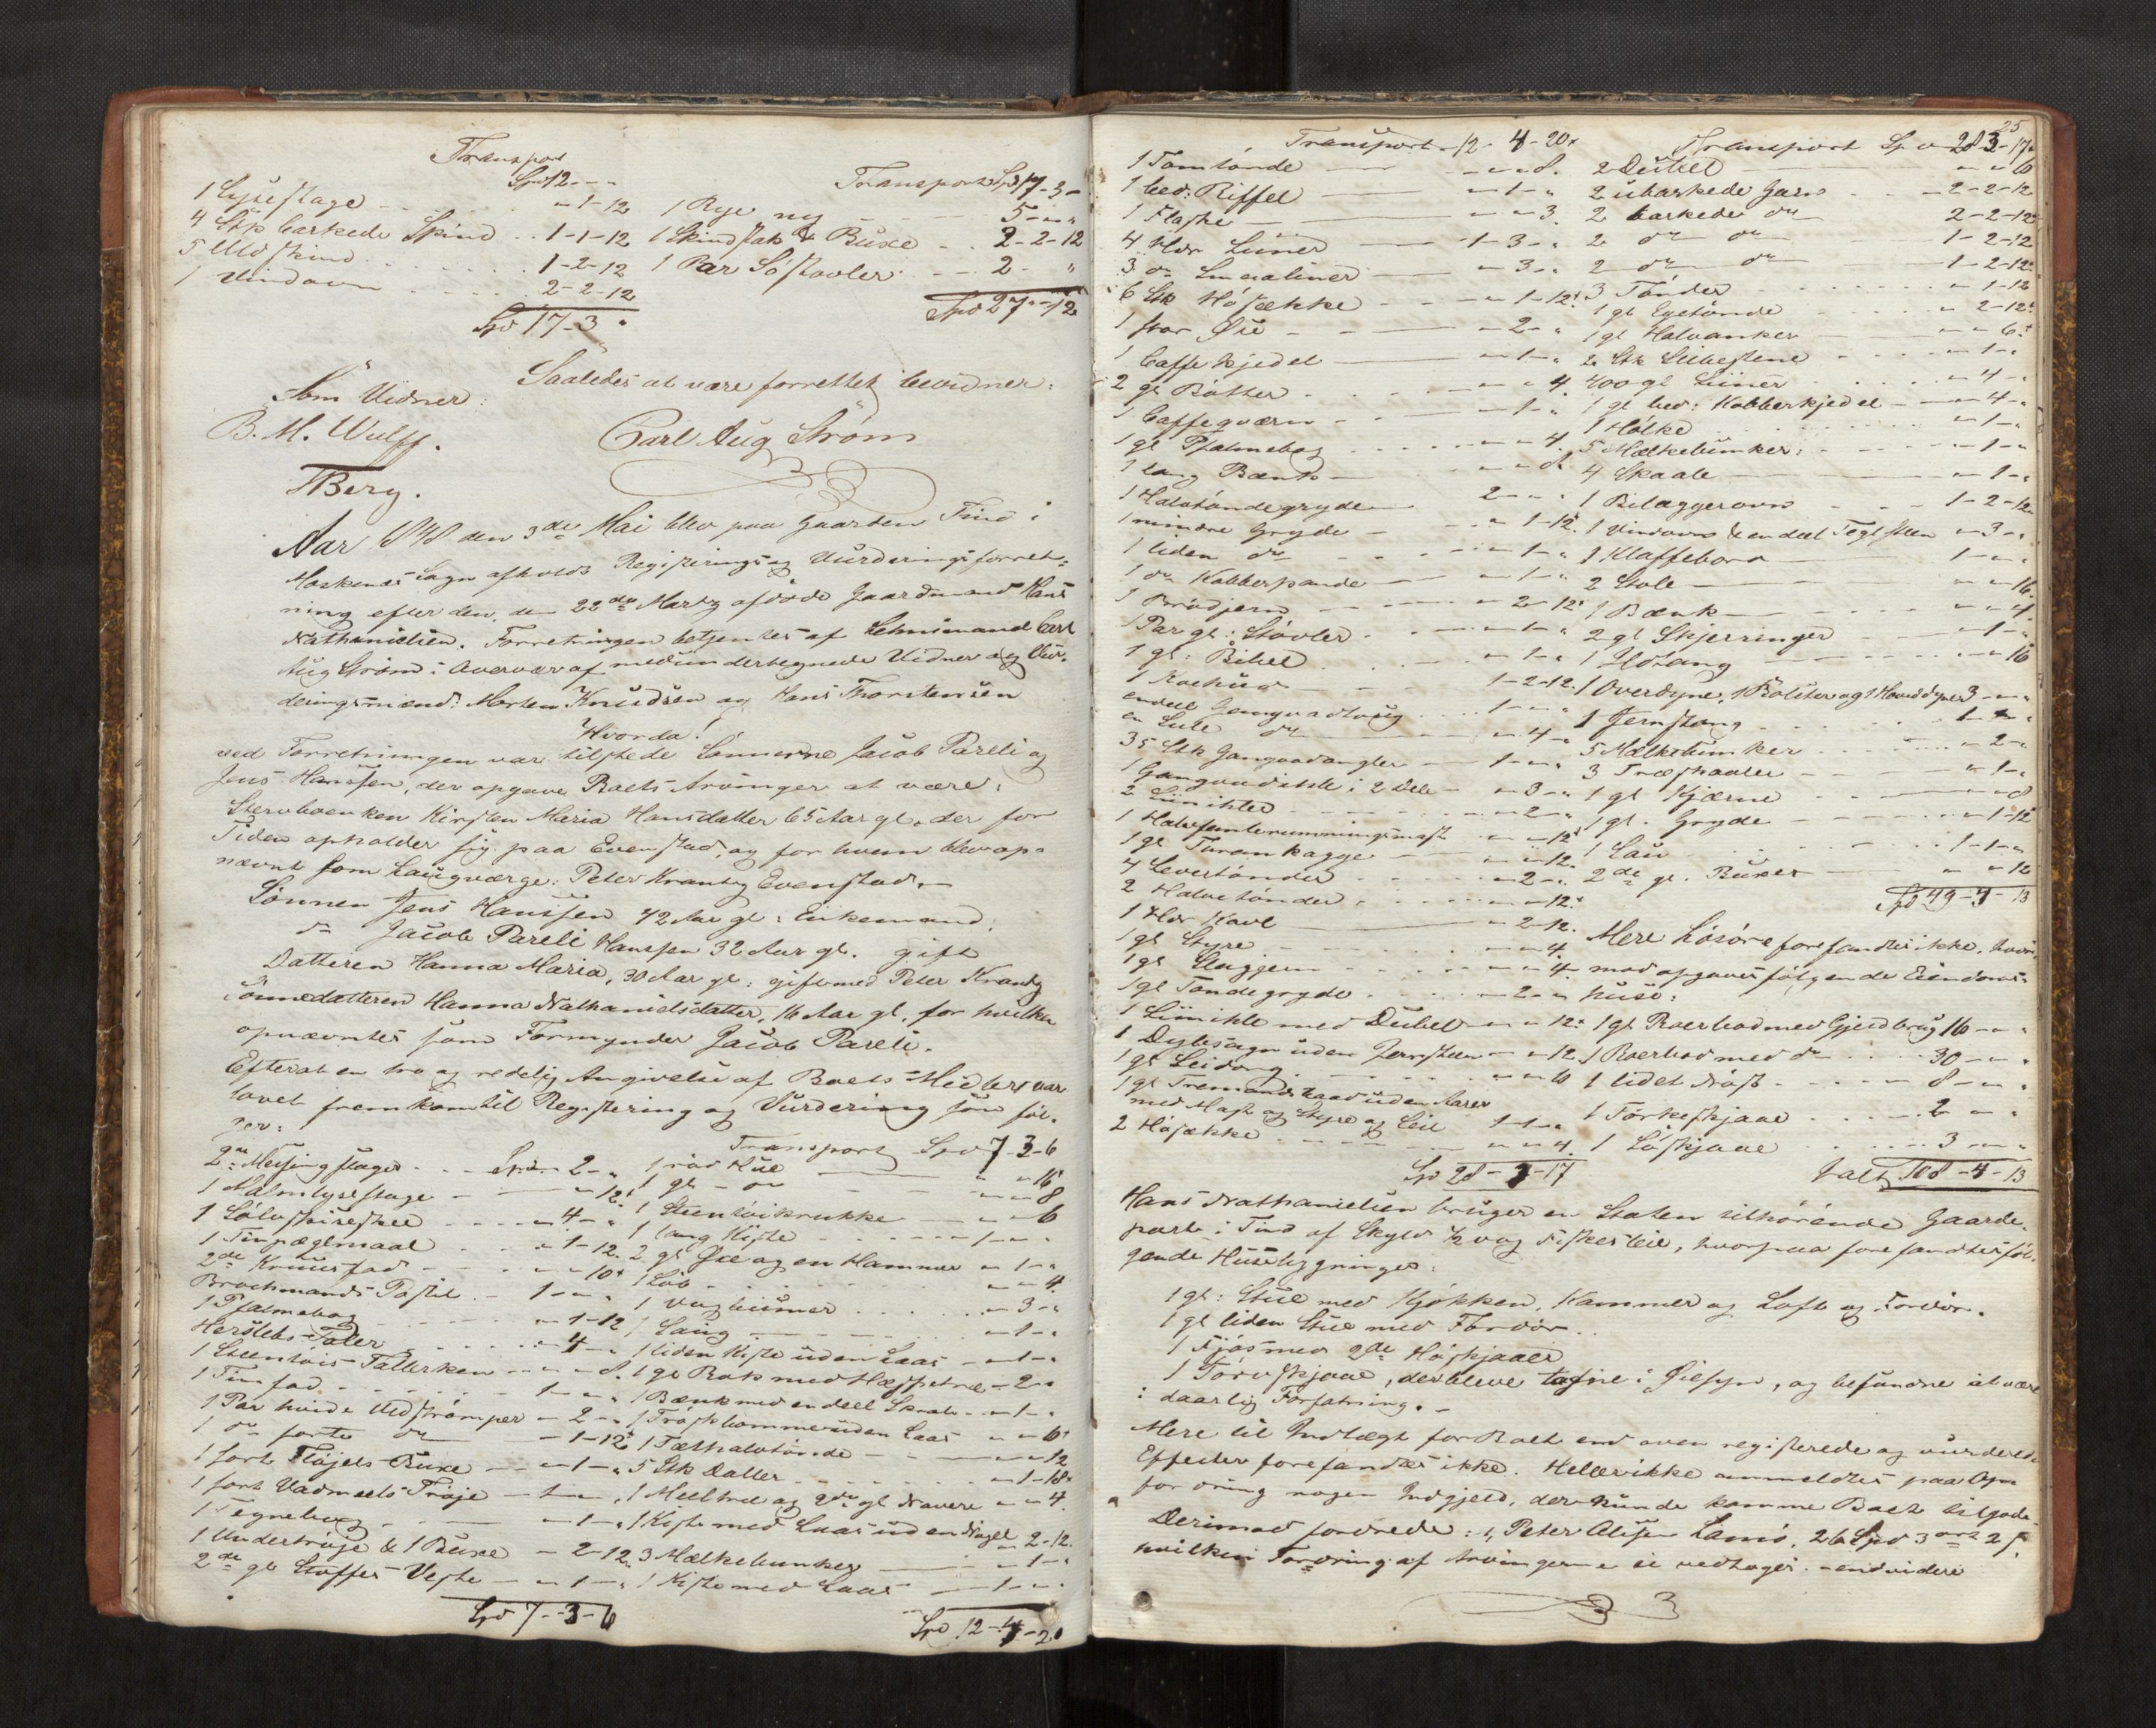 Transport
Spd 12 - -
1 Lysestage - 1-12
4 Stk barkede Skind 1-1-12
5 Uldskind 1-2-12
1 Vindovn 2-2-12
Spd 17-3 "
Transport Spd 17-3-
1 Rye ny 5 - "
1 Skindstak & Buxe 2-2-12
1 Par Söstøvler 2 - "
Spd 27 - 12
Saaledes at være forrettet bevidner:
Som Vidner:
B. M. Wulff.
Carl Aug Strøm
Berg.
Aar 1848 den 3de Mai blev paa Gaarden Tind i
Moskenes Sogn afholdt Registrerings og Vurderingsforret-
ning efter den, den 22de Martz afdöde Gaardmand Hans
Nathanielsen. Forretningen betjentes af Lehnsmand Carl
Aug Strøm i Overvær af medundertegnede Vidner og Vur-
deringsmænd: Morten Knudsen og Hans Thorstensen
Hvorda!
ved Forretningen var tilstede Sønnerne Jacob Pareli og
Jens Hanssen, der opgave Boets Arvinger at være:
Stervboenken Kirsten Maria Hansdatter 65 Aar gl. der for
Tiden opholder sig paa Evenstad, og for hvem blev op-
nævnt som Laugværge: Peter Krantz Evenstad.-
Sönnen Jens Hanssen 42 Aar gl: Enkemand.
do Jacob Pareli Hanssen 32 Aar gl. gift
Datteren Hanna Maria, 30 Aar gl: gift med Peter Krantz
Sönnedatteren Hanna Nathanielsdatter, 16 Aar gl. for hvilken
opnævntes som Formynder Jacob Pareli.
Efterat en tro og redelig Angivelse af Boets Midler var
lovet fremkom til Registrering og Vurdering som föl-
ger:
2de Messingstager Spd 2 - "
1 Malmlysestage - 12
1 Sölvskueskee - 4 - "
1 Tinpæglmaal - 1-12
2de Kruusfad - 10
Brochmands Postil 1 - "
1 Psalmebog - 1-12
Herslebs Taler - 4
1 Steentöis Tallerken - 8
1 Tinfad 1 - "
1 Par hvide Uldströmper - 2 - "
1 do sorte do - 1-12
1 sort Flöjels Buxe - 1 - "
1 sort Vadmels Tröje 1 - "
1 Tegnebog - 1 - "
1 Undertröje & 1 Buxe - 2-12
2de gl Stoffes Veste - 1 - "
Spd 7-3-6
Transport Spd 7-3-6
1 röd Hue - 16
1 gl - do - 8
1 Steentöikrukke - 6
1 lang Kiste - 1 -
2 gl Öxe og en Hammer - 1 -
1 Lob - 4
1 Vogbismer - 3 -
1 Laug - 1 -
1 liden Kiste uden Laas - 1 -
1 gl Rok med Hespetræ - 2 -
1 Bænk med endeel Skrab - 1 -
1 Træskkomme uden Laas - 6
1 Fæthalvtönde - 12
5 Stk Daller - 1-18
1 Meeltrue og 2de gl Navere - 4
1 Kiste med Laas uden Nögel 2-12
3 Mælkebunker - 1 -
1 Kiste med Laas - 1 -
Spd 12-4-20
25
Transport 12-4-20
1 Tomtönde - 8
1 bed: Riffel - 1 - "
1 Flaske - 3
4 Hdr Liiner 1-3 - "
3 do Smaaliner - 3 - "
6 Stk Hösække - 1-12
1 stor Öxe - 2 - "
1 Caffekjedel - 1 - "
2 gl Bötter - 4
1 Caffeqværn - 1 - "
1 gl Psalmebog - 4
1 lang Bænk - 8
1 Halvtöndegryde 2 - "
1 mindre Gryde - 1-12
1 liden do - 1 - "
1 do Kobberpande - 1 - "
1 Brödjern - 2-12
1 Par gl: Stövler - 1 - "
1 gl: Bibel - 1 - "
1 Roehus 1-2-12
endeel Gangvadtoug 1 - "
en Lute do - 4 -
35 Stk Gangvadangler 1 - "
1 Gangvadikte i 2 Dele - 3 - "
2 Liinikter - 2 - "
1 Halvfemterummingsmast - 12
1 gl Tarankagge - 12
4 Levertönder - 2 - "
2 Halvetönder - 12
1 Hdr Kavl - 2-12
1 gl Styre - 4
1 gl Slagjern - 4
1 gl Töndegryde - 2 - "
1 Liinikte med Dubel - 12
1 Dybesagn uden Jernsteen - 12
1 gl Leidong - 6
1 gl Tremandsbaad uden Aarer
med Mast og Styre og Seil 1-1 - "
2 Hösække - 4
Spd 28-3-17
Transport Spd 28-3-17
2 Dubel - 6
2 ubarkede Garn - 2-2-12
2 barkede do 2-2-12
2 do do 1-2-12
2 do do 1-2-12
3 Tönder - 1-12
1 gl Egetönde - 2-12
1 gl Halvanker - 6
2 Stk Slibestene - 1 -
400 gl Liiner - 4 -
1 gl bed: Kobberkjedel - 4 -
1 Hölke - 1 -
5 Mælkebunker: - 1 -
4 Skaale - 1 -
1 Bilæggerovn 1-2-12
1 Vindovn & en deel Teglsteen - 3 -
1 Klaffebord 1 -
2 Stole - 16
1 Bænk - 4
2 gl Skjerringer - 1 -
1 Ildtang - 16
1 Overdyne, 1 Bolster og 1 Hoveddyne 3 -
1 Jernstang 1 -
5 Mælkebunker - 2 -
3 Træskaaler " 1 -
1 gl Kjærne - 8
1 gl. Gryde - 1-12
1 Sau - 1-1 -
2de gl. Buxer - 12
Spd 49-4-13
Mere Lösöre forefandtes ikke, hvor-
mod opgaves fölgende Eiendoms-
huse:
1 gl Roerbod med Gjeidbrug 16 -
1 Roerbod med do 30 -
1 lidet Nöst 8 -
1 Törkeskjaae 2 -
1 Löskjaae 3 -
Ialt 108-4-13
Hans Nathanielsen bruger en Staten tilhörende Gaarde-
part i Tind af Skyld ½ vog Fiskesleie, hvorpaa forefandtes föl-
gende Huusebygninger:
1 gl: Stue med Kjökken, Kammer og Loft og Fordör.
1 gl liden Stue med Fordör.
1 Fjös med 2de Höskjaaer
1 Törvskjaae, der bleve tagne i Öiesyn, og befundne at være
i daarlig Forfatning. -
Mere til Indtægt for Boet end oven registrerede og vurderede
Effecter forefandtes ikke. Heller ikke anmeldtes paa Op-
fordring nogen Indgjeld, der kunde komme Boet tilgode.
Derimod fordrede: 1, Peter Olsen Lamö, 26 Spd 3 ort 2 s.
hvilken Fordring af Arvingerne ei vedtages. - endvidere